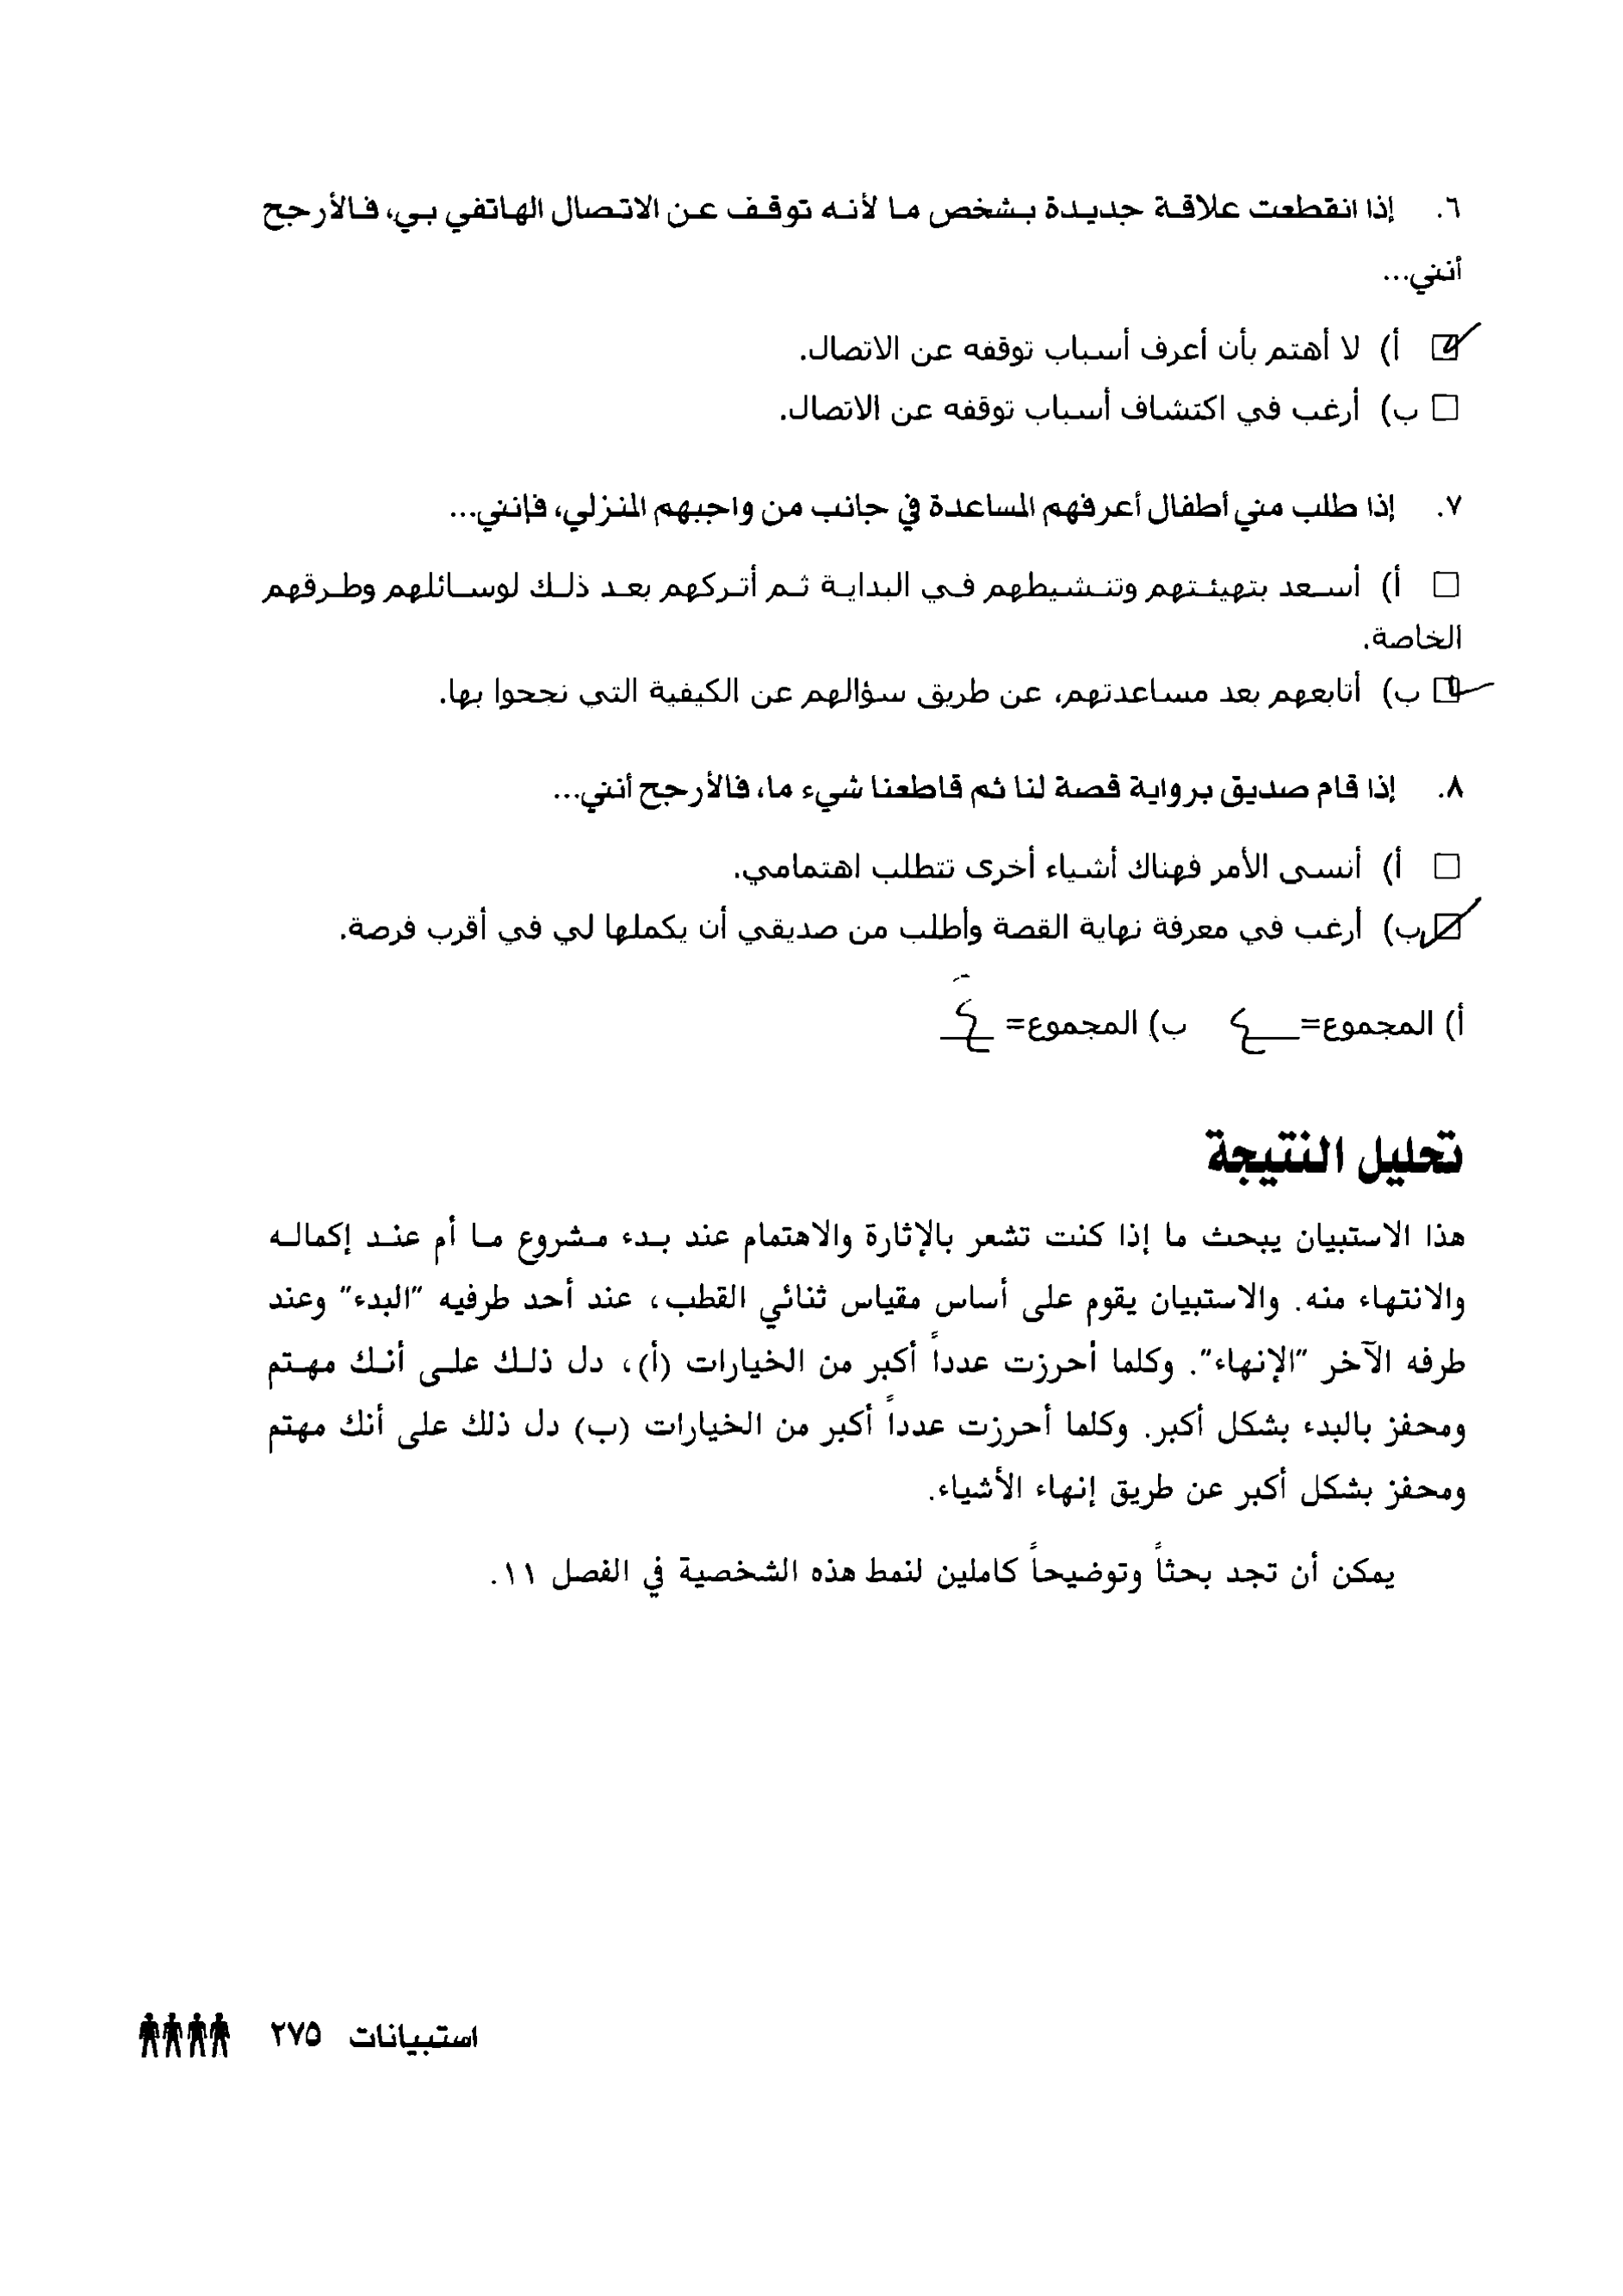 ٦. إذا انقطعت علاقة جديدة بشخص ما لأنه توقف عن الاتصال الهاتفي بي، فالأرجح
أنني...
أ) لا أهتم بأن أعرف أسباب توقفه عن الاتصال.
ب) أرغب في اكتشاف أسباب توقفه عن الاتصال.
٧. إذا طلب مني أطفال أعرفهم المساعدة في جانب من واجبهم المنزلي، فإنني...
أ) أسعد بتهيئتهم وتنشيطهم في البداية ثم أتركهم بعد ذلك لوسائلهم وطرقهم
الخاصة.
ب) أتابعهم بعد مساعدتهم، عن طريق سؤالهم عن الكيفية التي نجحوا بها.
٨. إذا قام صديق برواية قصة لنا ثم قاطعنا شيء ما، فالأرجح أنني...
أ) أنسى الأمر فهناك أشياء أخرى تتطلب اهتمامي.
ب) أرغب في معرفة نهاية القصة وأطلب من صديقي أن يكملها لي في أقرب فرصة.
أ) المجموع= ٤ ب) المجموع= ٤
تحليل النتيجة
هذا الاستبيان يبحث ما إذا كنت تشعر بالإثارة والاهتمام عند بدء مشروع ما أم عند إكماله
والانتهاء منه. والاستبيان يقوم على أساس مقياس ثنائي القطب، عند أحد طرفيه "البدء" وعند
طرفه الآخر "الإنهاء". وكلما أحرزت عدداً أكبر من الخيارات (أ)، دل ذلك على أنك مهتم
ومحفز بالبدء بشكل أكبر. وكلما أحرزت عدداً أكبر من الخيارات (ب) دل ذلك على أنك مهتم
ومحفز بشكل أكبر عن طريق إنهاء الأشياء.
يمكن أن تجد بحثاً وتوضيحاً كاملين لنمط هذه الشخصية في الفصل ١١.
استبيانات ٢٧٥